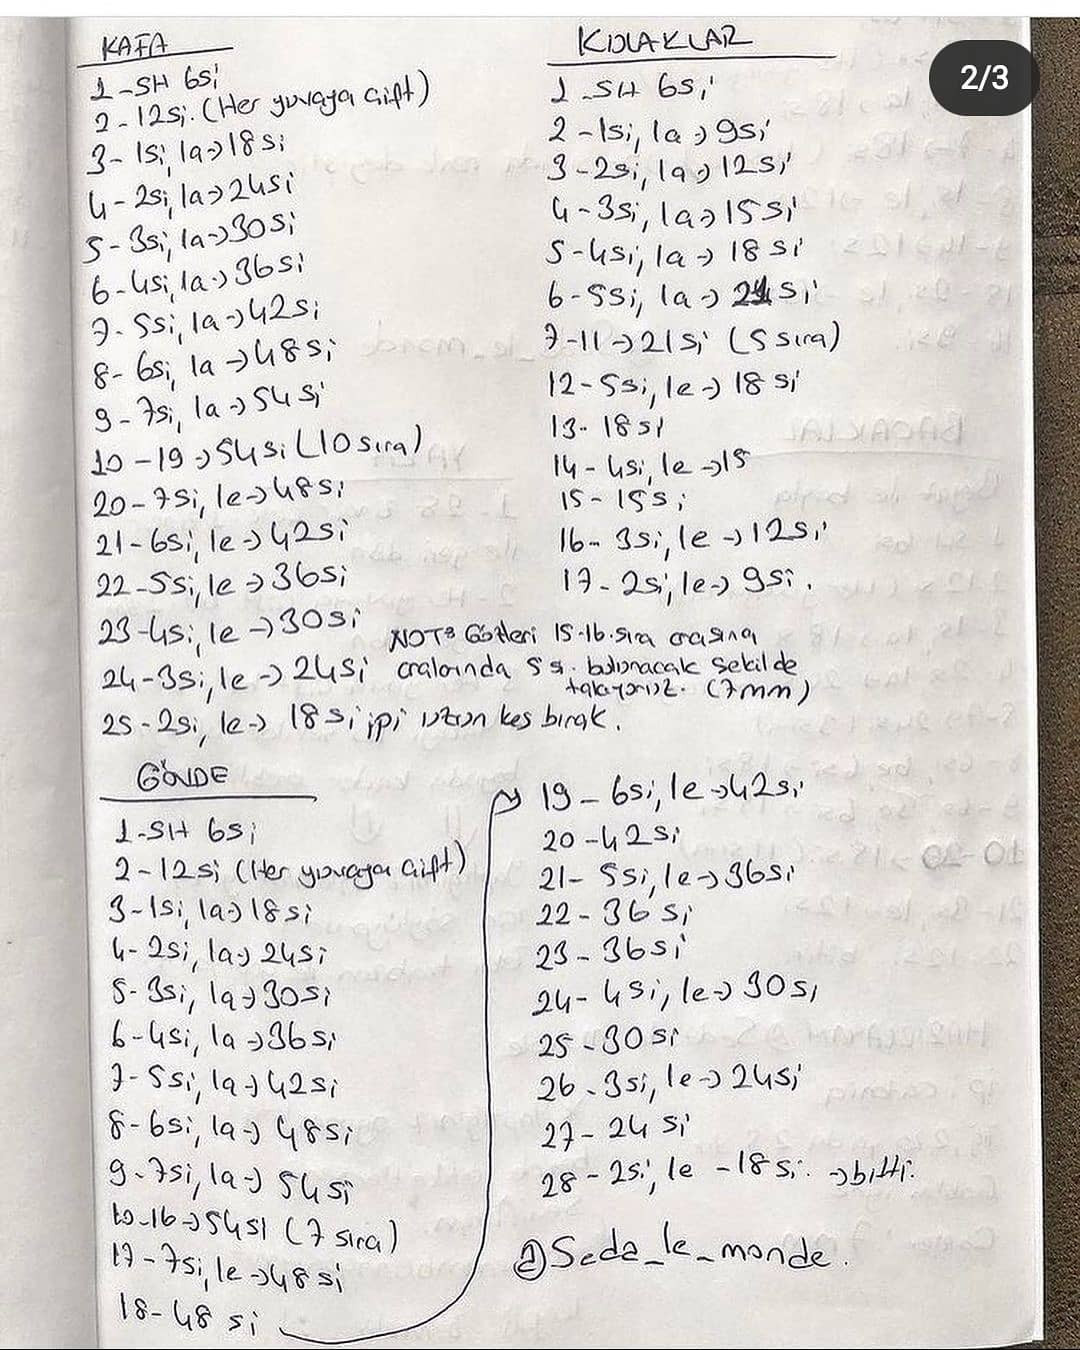 2/3
KAFA
1-SH 6si
2-12si. (Her yuvaya çift)
3-1si, 1a→18si
4-2si, 1a→24si
5-3si, 1a→30si
6-4si, 1a→36si
7-5si, 1a→42si
8-6si, 1a→48si
9-7si, 1a→54si
10-19→54si (10 sıra)
20-7si, 1e→48si
21-6si, 1e→42si
22-5si, 1e→36si
23-4si, 1e→30si
24-3si, 1e→24si
25-2si, 1e→18si ipi uzun kes bırak.
KULAKLAR
1-SH 6si
2-1si, 1a→9si
3-2si, 1a→12si
4-3si, 1a→15si
5-4si, 1a→18si
6-5si, 1a→21si
7-11→21si (5 sıra)
12-5si, 1e→18si
13-18si
14-4si, 1e→15
15-15si
16-3si, 1e→12si
17-2si, 1e→9si.
NOT: Gözleri 15-16.sıra arasına
aralarında 5 s. bulunacak şekilde
takıyoruz. (7mm)
GÖVDE
1-SH 6si
2-12si (Her yuvaya çift)
3-1si, 1a→18si
4-2si, 1a→24si
5-3si, 1a→30si
6-4si, 1a→36si
7-5si, 1a→42si
8-6si, 1a→48si
9-7si, 1a→54si
10-16→54si (7 sıra)
17-7si, 1e→48si
18-48si
19-6si, 1e→42si
20-42si
21-5si, 1e→36si
22-36si
23-36si
24-4si, 1e→30si
25-30si
26-3si, 1e→24si
27-24si
28-2si, 1e-18si. →bitti.
@Seda_le_monde.